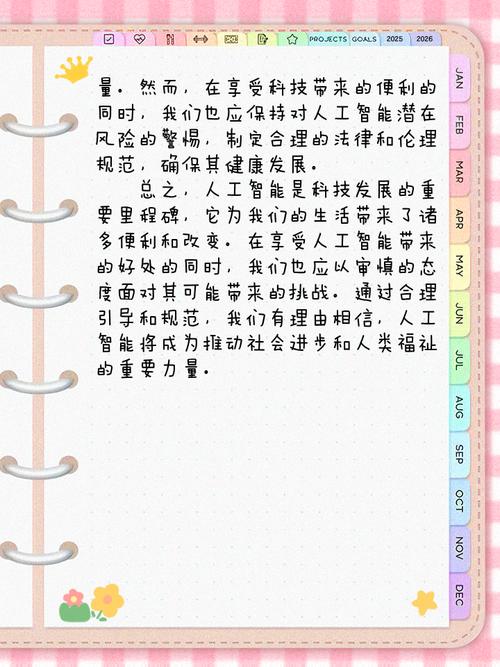 PROJECTS GOALS 2025 2026
量。然而，在享受科技带来的便利的
同时，我们也应保持对人工智能潜在
风险的警惕，制定合理的法律和伦理
规范，确保其健康发展。
总之，人工智能是科技发展的重
要里程碑，它为我们的生活带来了诸
多便利和改变。在享受人工智能带来
的好处的同时，我们也应以审慎的态
度面对其可能带来的挑战。通过合理
引导和规范，我们有理由相信，人工
智能将成为推动社会进步和人类福祉
的重要力量。
JAN
FEB
MAR
APR
MAY
JUN
JUL
AUG
SEP
OCT
NOV
DEC